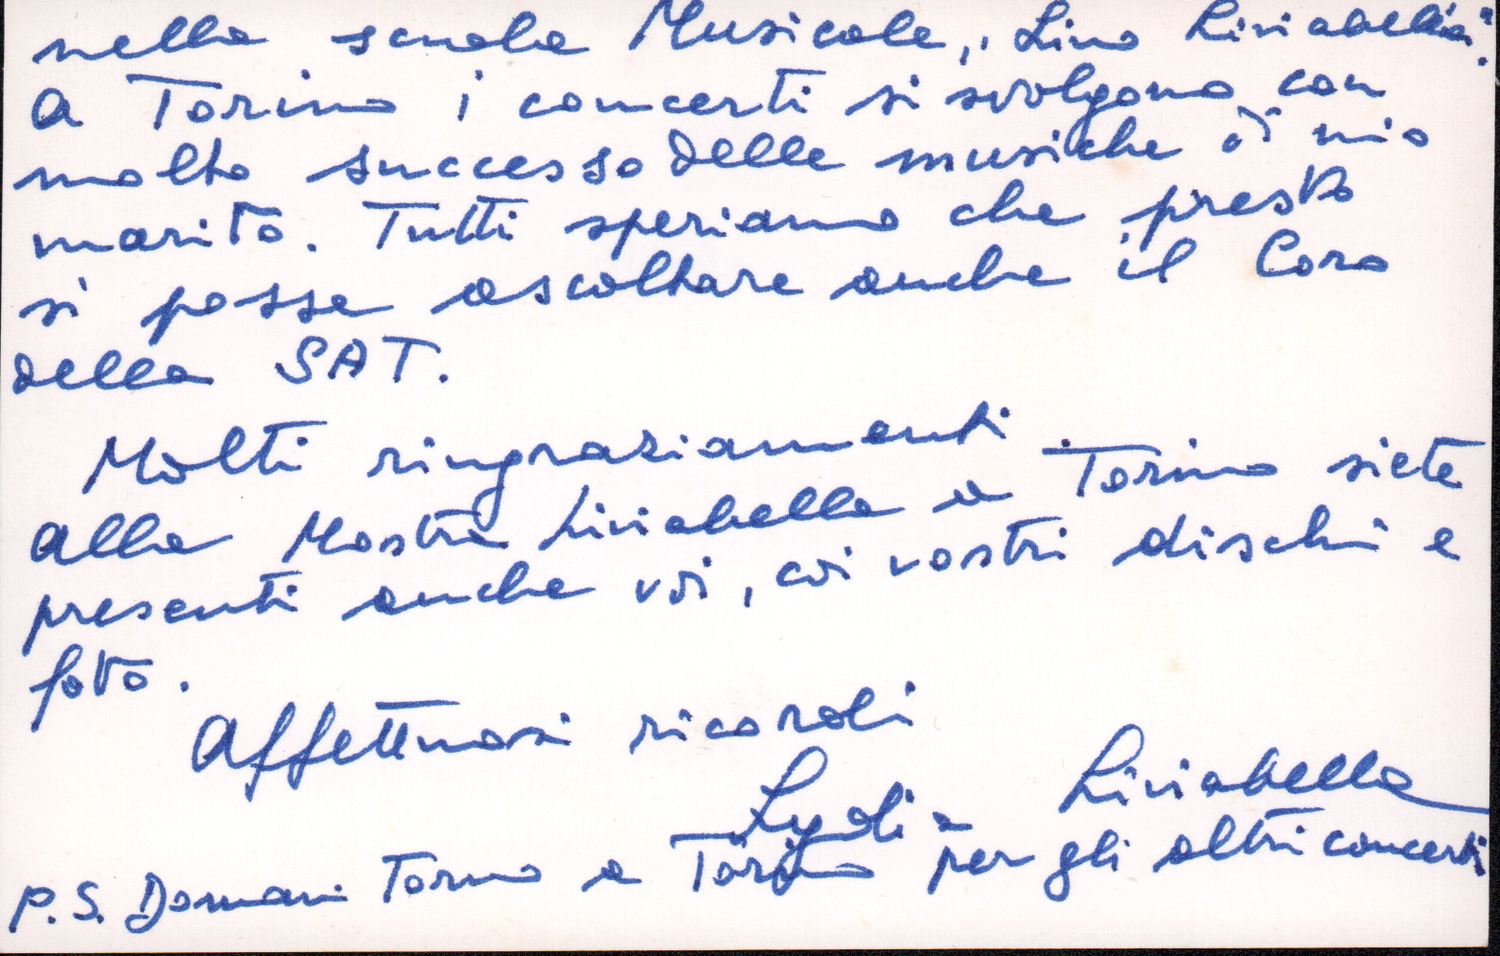 nella scuola Musicale „ Lino Liviabella".
A Torino i concerti si svolgono con
molto successo delle musiche di mio
marito. Tutti speriamo che presto
si possa ascoltare anche il Coro
della SAT.
Molti ringraziamenti.
Alla Mostra Liviabella a Torino siete
presenti anche voi, coi vostri dischi e
foto.
Affettuosi ricordi
Lydia Liviabella
P.S. Domani Torno a Torino per gli altri concerti